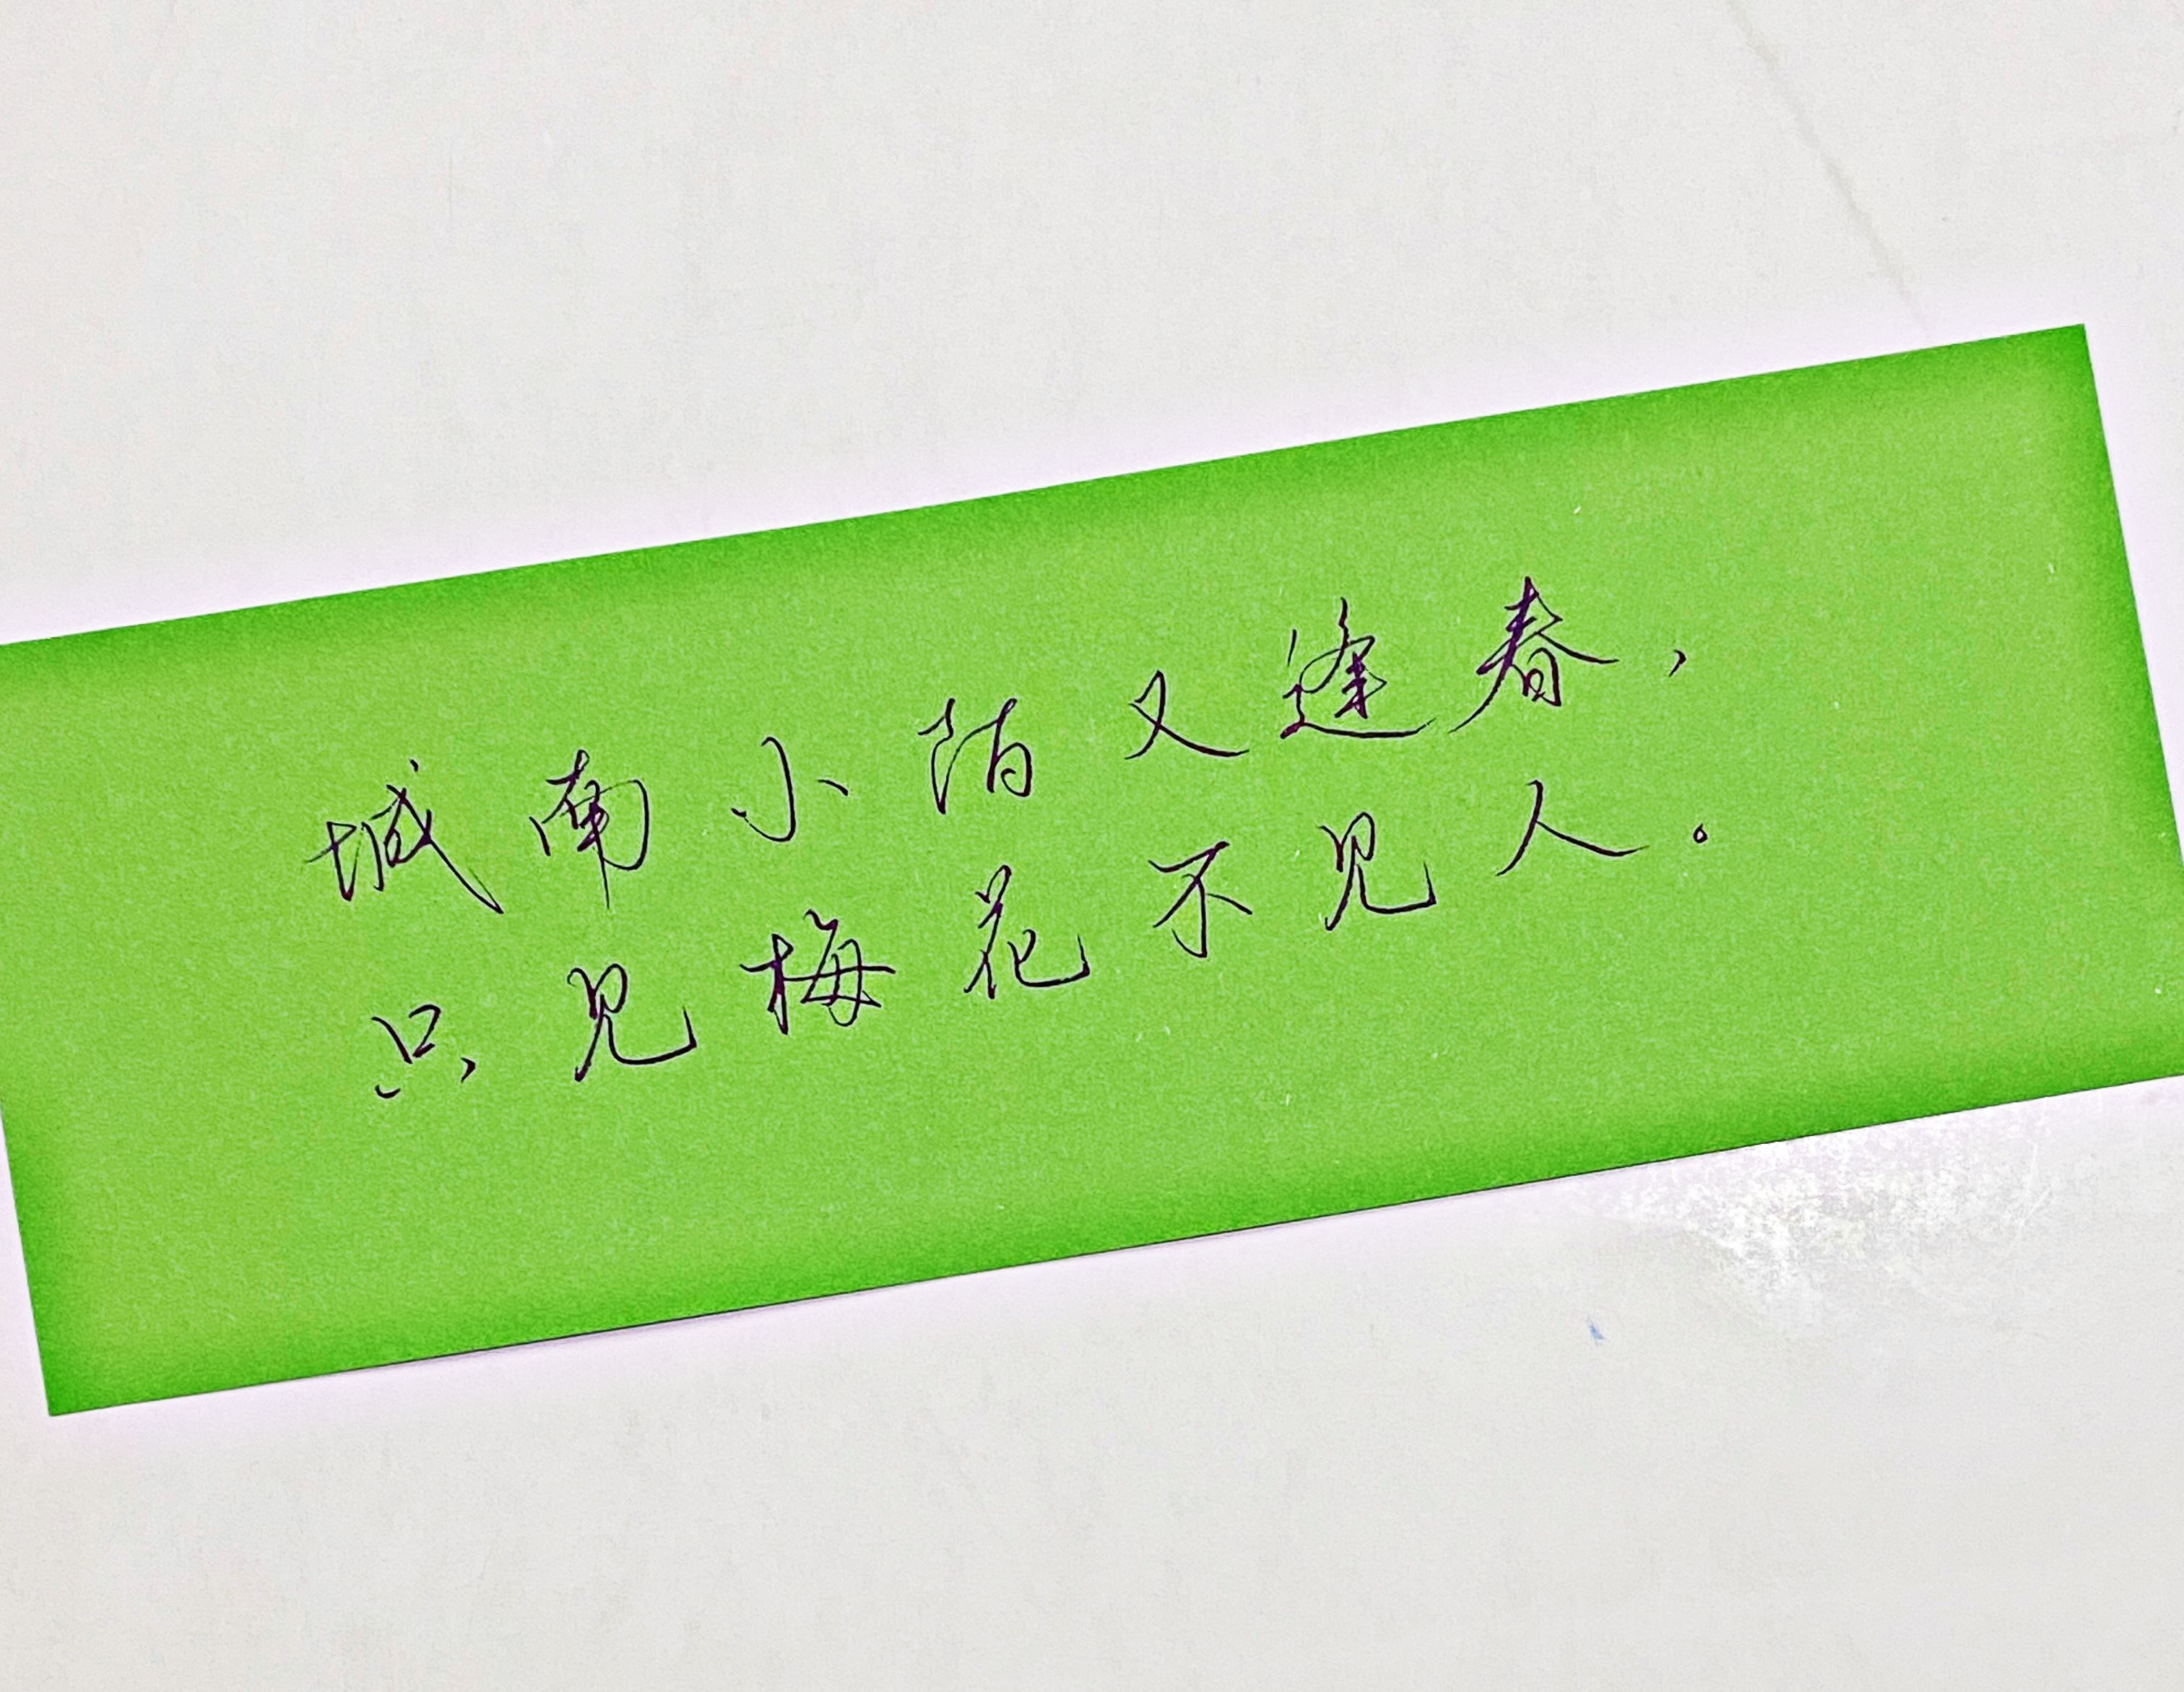 城南小陌又逢春，
只见梅花不见人。